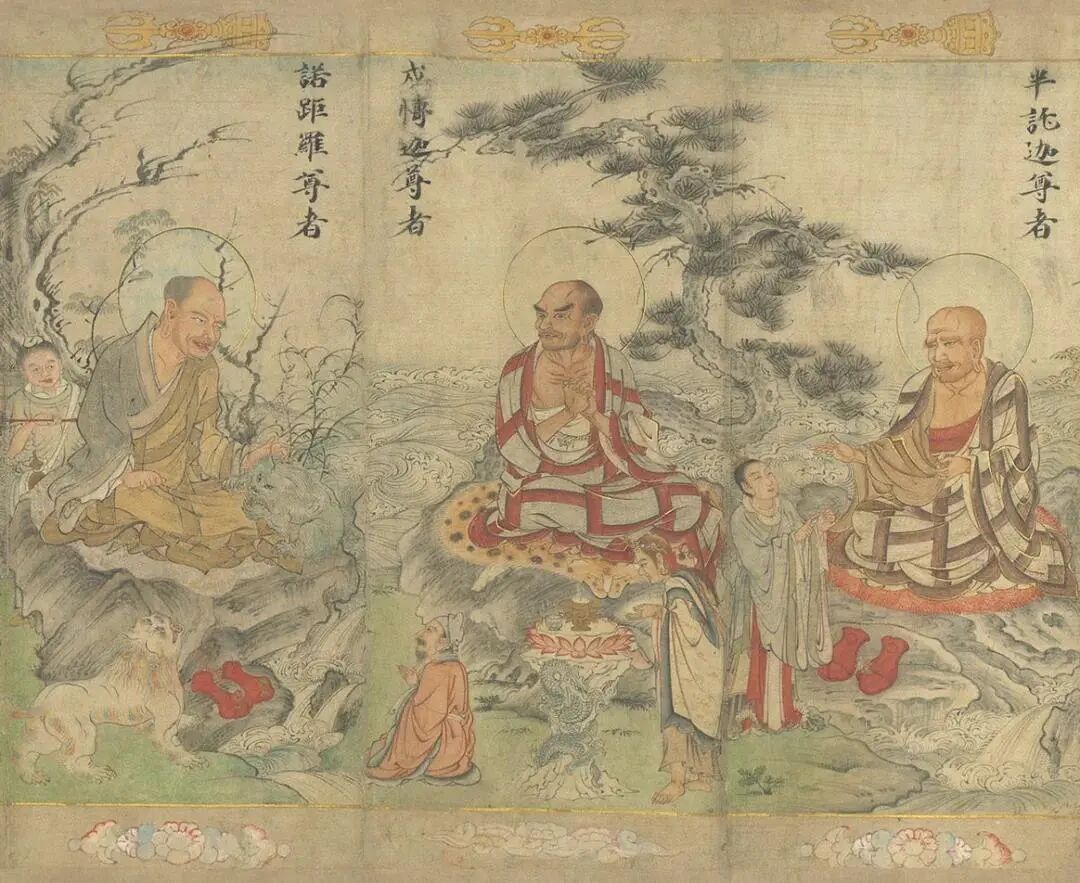 半託迦尊者
戍愽迦尊者
諾距羅尊者